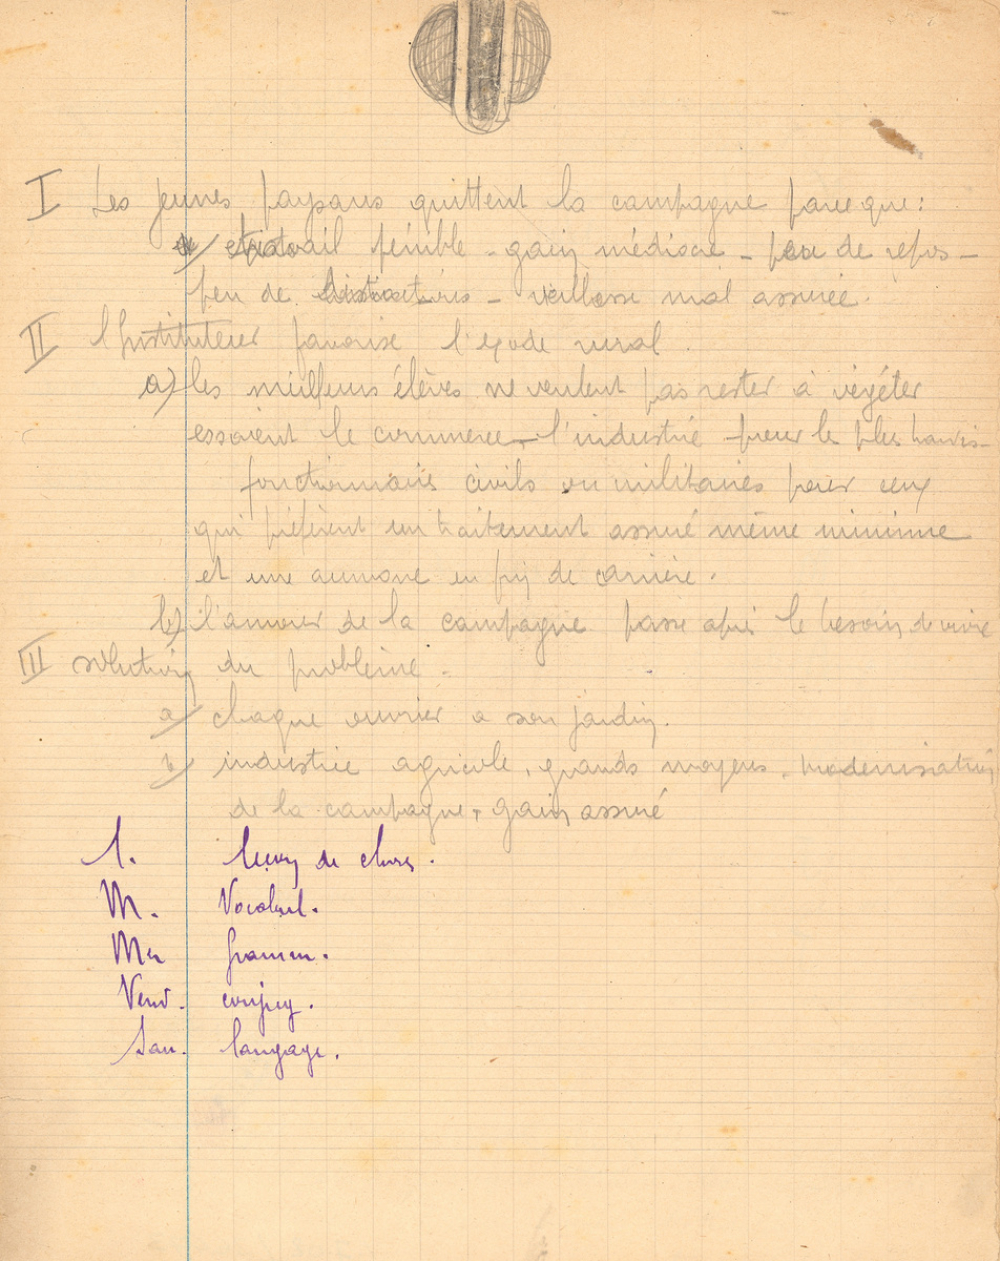 I Les jeunes paysans quittent la campagne parce que:
a/ travail pénible - gain médiocre - peu de repos -
peu de distractions - vieillesse mal assurée.
II l'Instituteur favorise l'exode rural.
a) les meilleurs élèves ne veulent pas rester à végéter
essaient le commerce, l'industrie pour les plus hardis -
fonctionnaires civils ou militaires pour ceux
qui préfèrent un traitement assuré même minime
et une aumone en fin de carrière.
b) l'amour de la campagne passe après le besoin de vivre
III solution du problème.
a/ chaque ouvrier a son jardin.
b/ industrie agricole, grands moyens. modernisation
de la campagne, gain assuré
l. leçon de choses.
M. Vocabul.
Me gramm.
Vend. conjug.
Sam. langage.